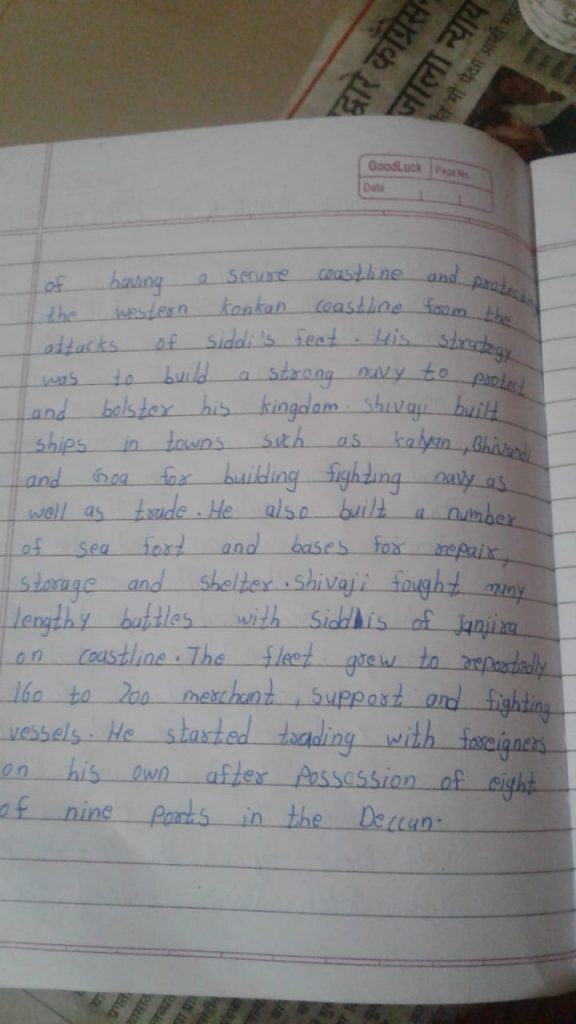 द्वारे काँग्रेस
जाला न्याय
GoodLuck Page No.
Date
of having a secure coastline and protecting
the western konkan coastline from the
attacks of siddi's feet. His strategy
was to build a strong navy to protect
and bolster his kingdom. shivaji built
ships in towns such as kalyan, Bhivandi
and Goa for building fighting navy as
well as trade. He also built a number
of sea fort and bases for repair,
storage and shelter. Shivaji fought many
lengthy battles with siddis of Janjira
on coastline. The fleet grew to reportedly
160 to 700 merchant, support and fighting
vessels. He started trading with foreigners
on his own after possession of eight
of nine ports in the Deccan.